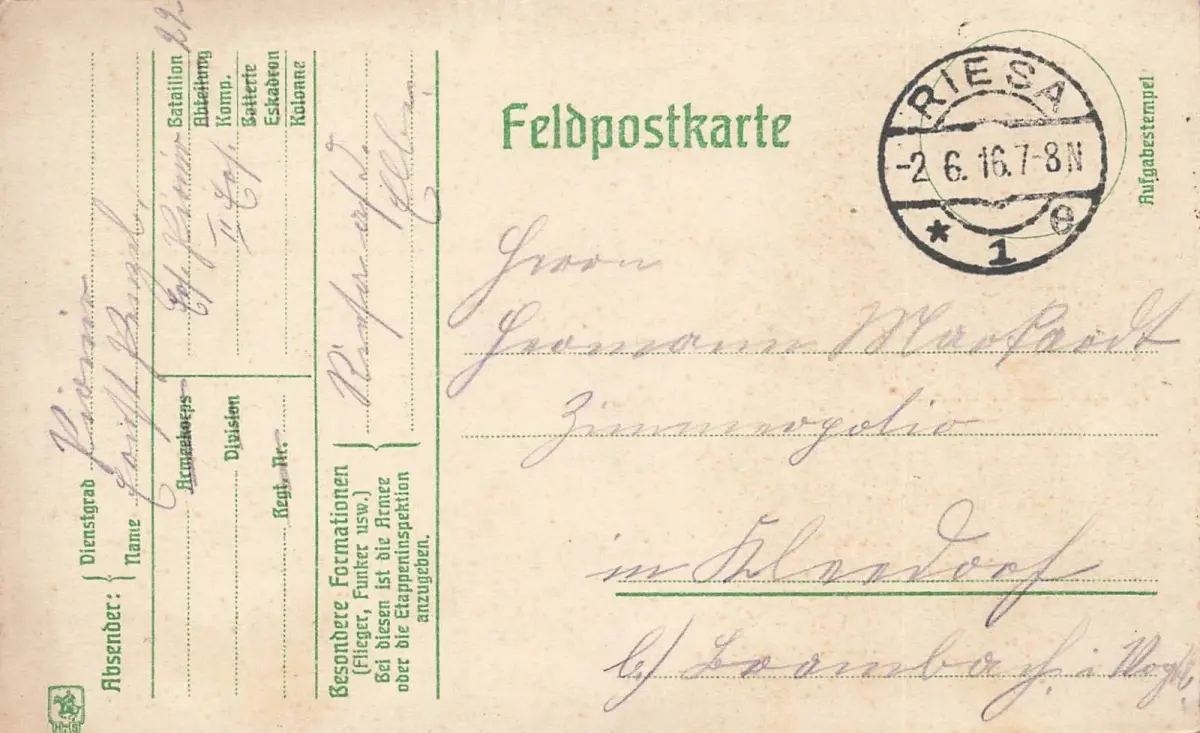 Feldpostkarte
RIESA
-2.6.16.7-8N
* 1 e
Aufgabestempel
Herrn
Hermann Markardt
Zimmerpolier
in Kleedorf
b/ Brambach i Vogtl.
Absender:
Dienstgrad Pionier
Name
Ers. Pionier Bataillon 22
II Ers. Abteilung
Komp.
Batterie
Eskadron
Kolonne
Armeekorps
Division
Regt. Nr.
Besondere Formationen
(Flieger, Funker usw.)
Bei diesen ist die Armee
oder die Etappeninspektion
anzugeben.
Riesa
Elbe.
H.S.